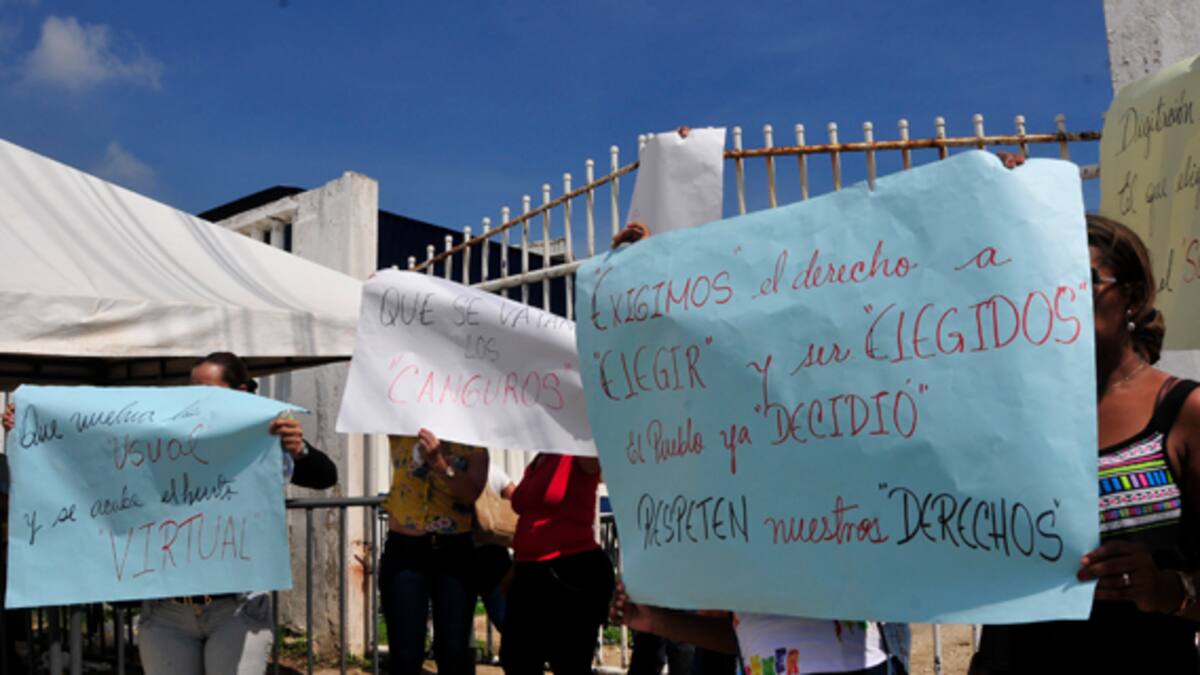 Que vuelva lo
"Usual"
y se acaba el hurto
"VIRTUAL"
QUE SE VAYAN
LOS
"CANGUROS"
"EXIGIMOS" el derecho a
"ELEGIR" y ser "ELEGIDOS"
El Pueblo ya "DECIDIÓ"
RESPETEN nuestros "DERECHOS"
Digitación
El que elig
el